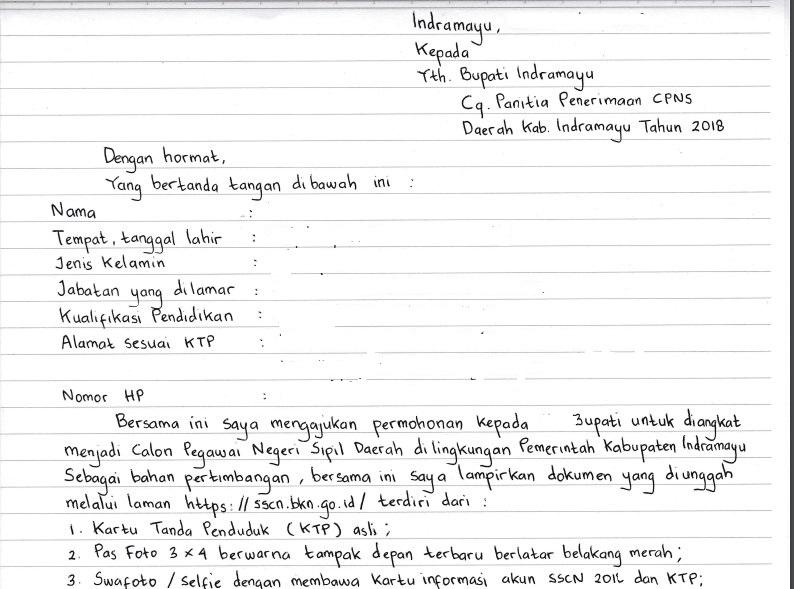 Indramayu,
Kepada
Yth. Bupati Indramayu
Cq. Panitia Penerimaan CPNS
Daerah Kab. Indramayu Tahun 2018
Dengan hormat,
Yang bertanda tangan dibawah ini :
Nama :
Tempat, tanggal lahir :
Jenis Kelamin :
Jabatan yang dilamar :
Kualifikasi Pendidikan :
Alamat sesuai KTP :
Nomor HP :
Bersama ini saya mengajukan permohonan kepada 3upati untuk diangkat
menjadi Calon Pegawai Negeri Sipil Daerah dilingkungan Pemerintah Kabupaten Indramayu
Sebagai bahan pertimbangan, bersama ini saya lampirkan dokumen yang diunggah
melalui laman https://sscn.bkn.go.id/ terdiri dari :
1. Kartu Tanda Penduduk (KTP) asli;
2. Pas Foto 3 x 4 berwarna tampak depan terbaru berlatar belakang merah;
3. Swafoto / selfie dengan membawa Kartu informasi akun SSCN dan KTP;